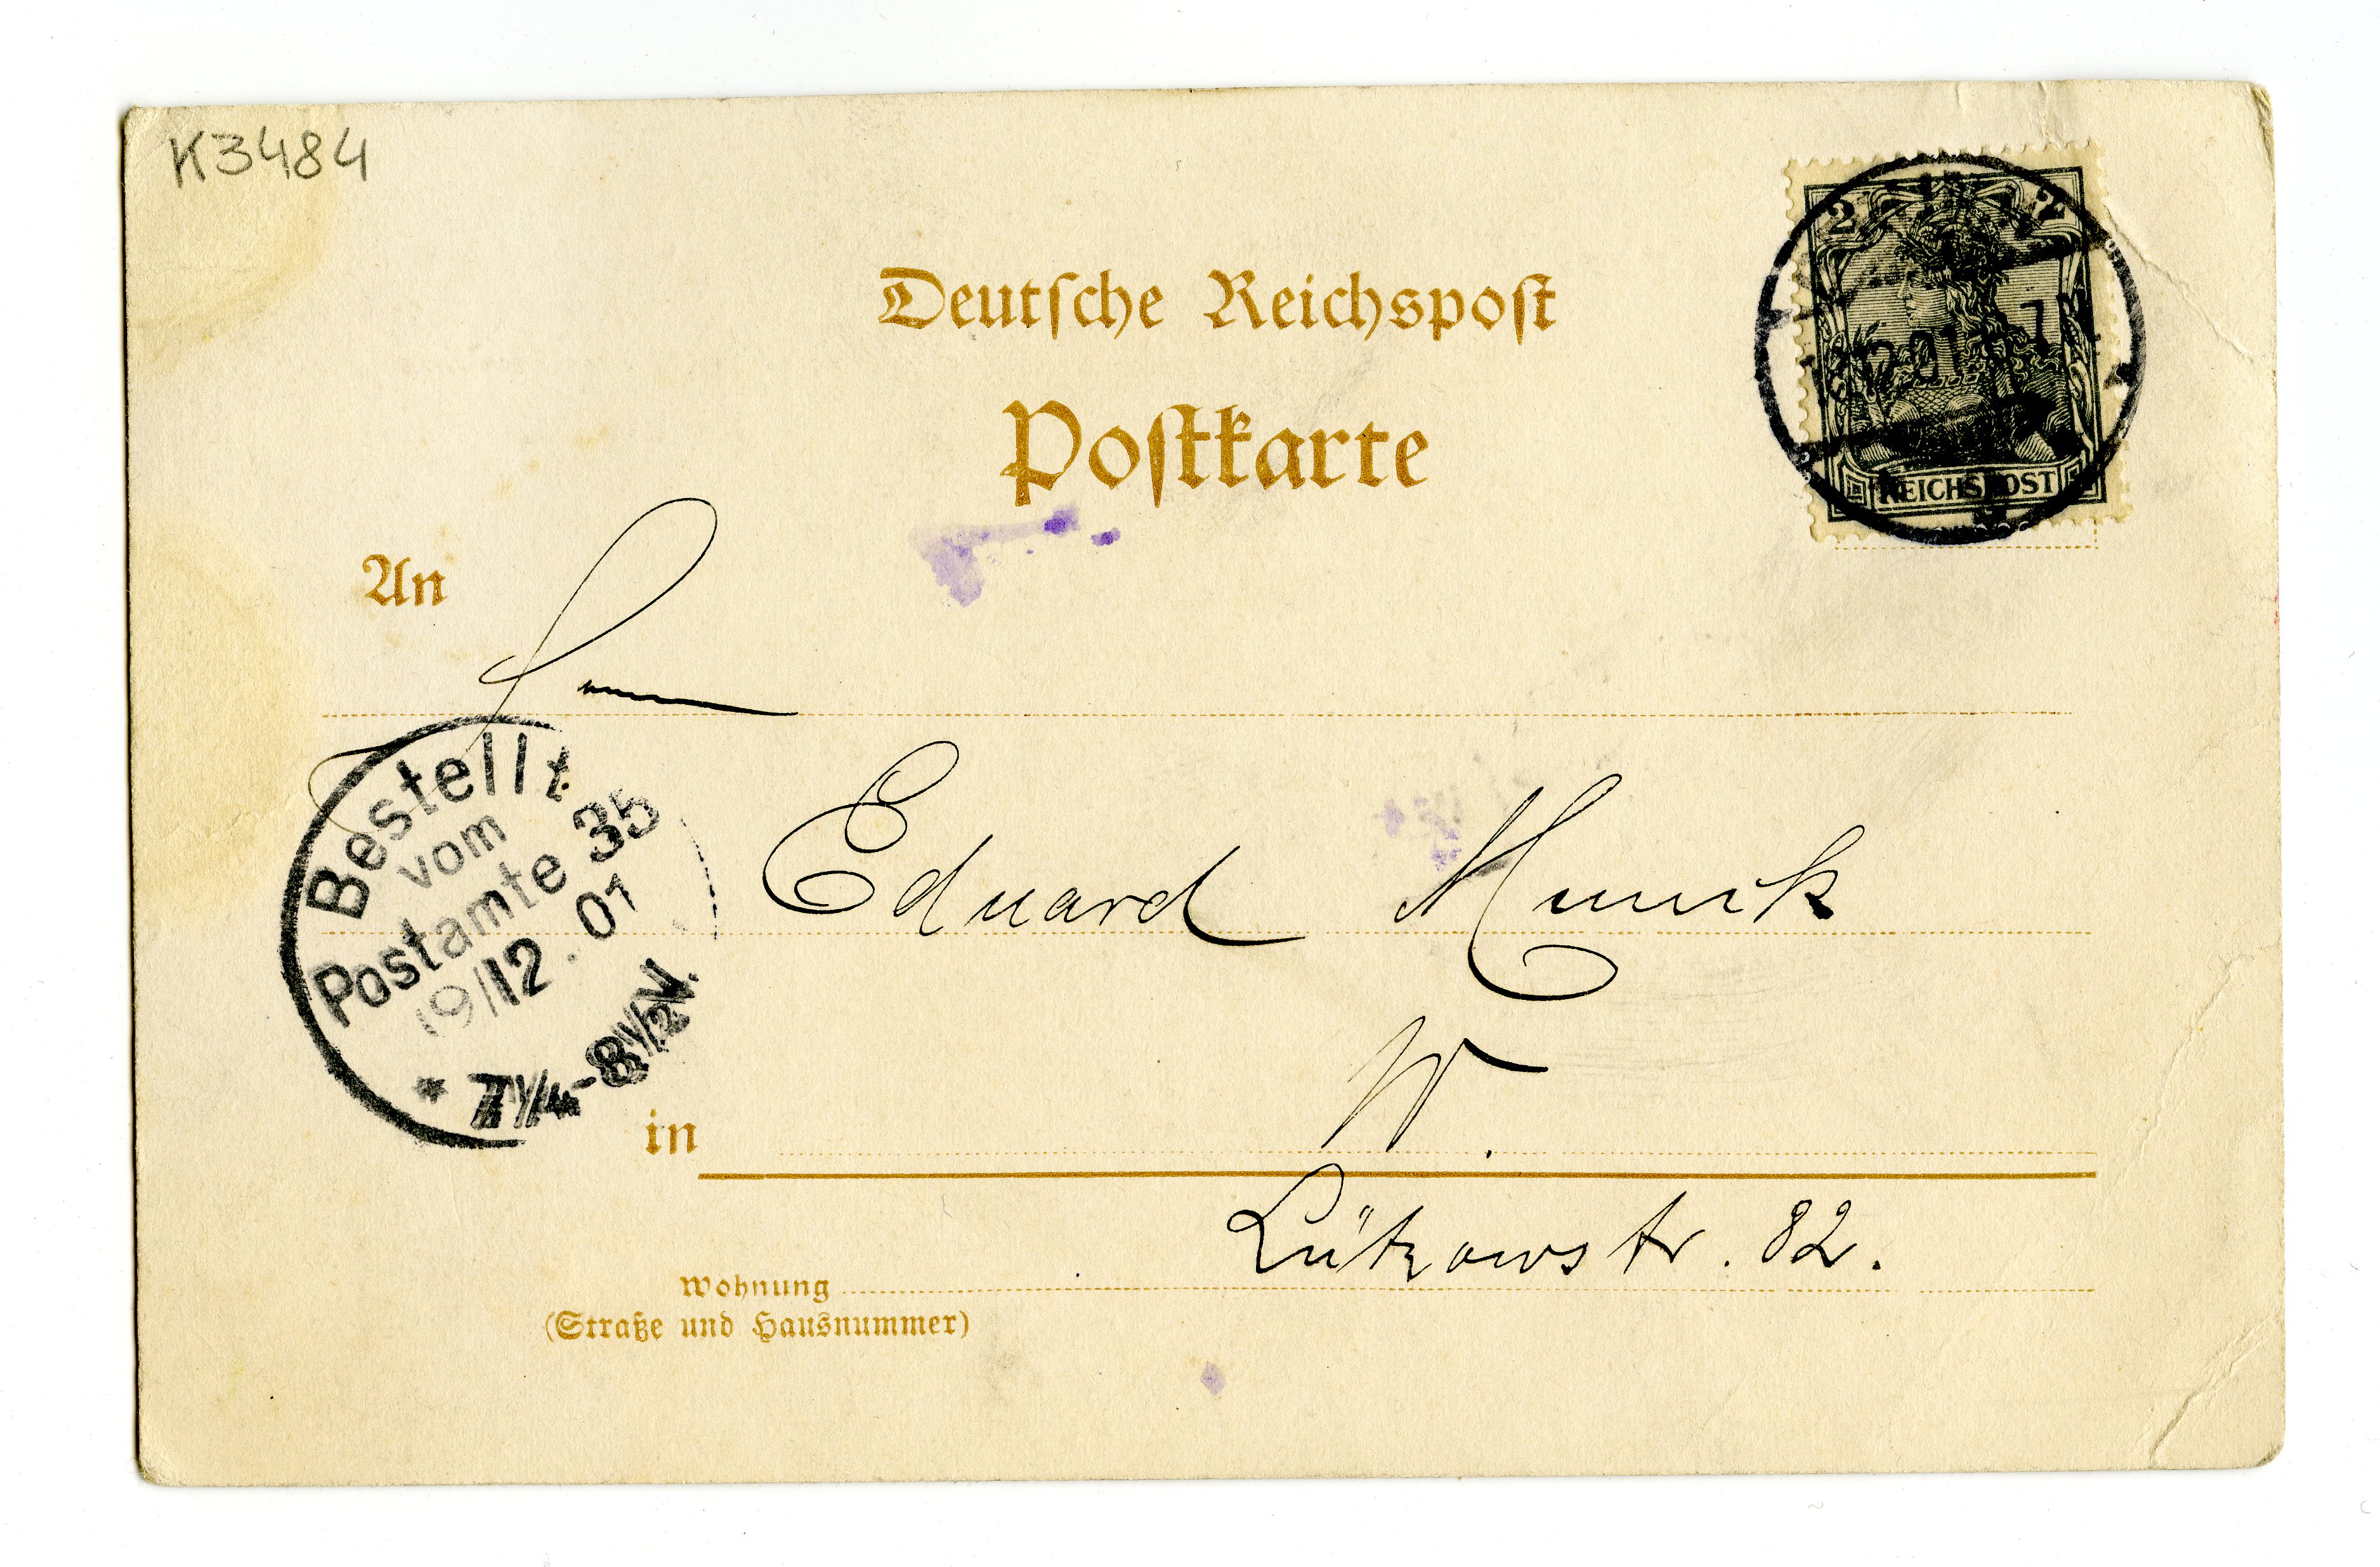 K3484
2 2
18.12.01. 7 N
REICHSPOST
Deutsche Reichspost
Postkarte
An
Herrn
Eduard
W.
in
Lützowstr. 82.
Wohnung
(Straße und Hausnummer)
Bestellt
vom
Postamte 35
19/12.01
* 7 1/4-8 1/2 N.